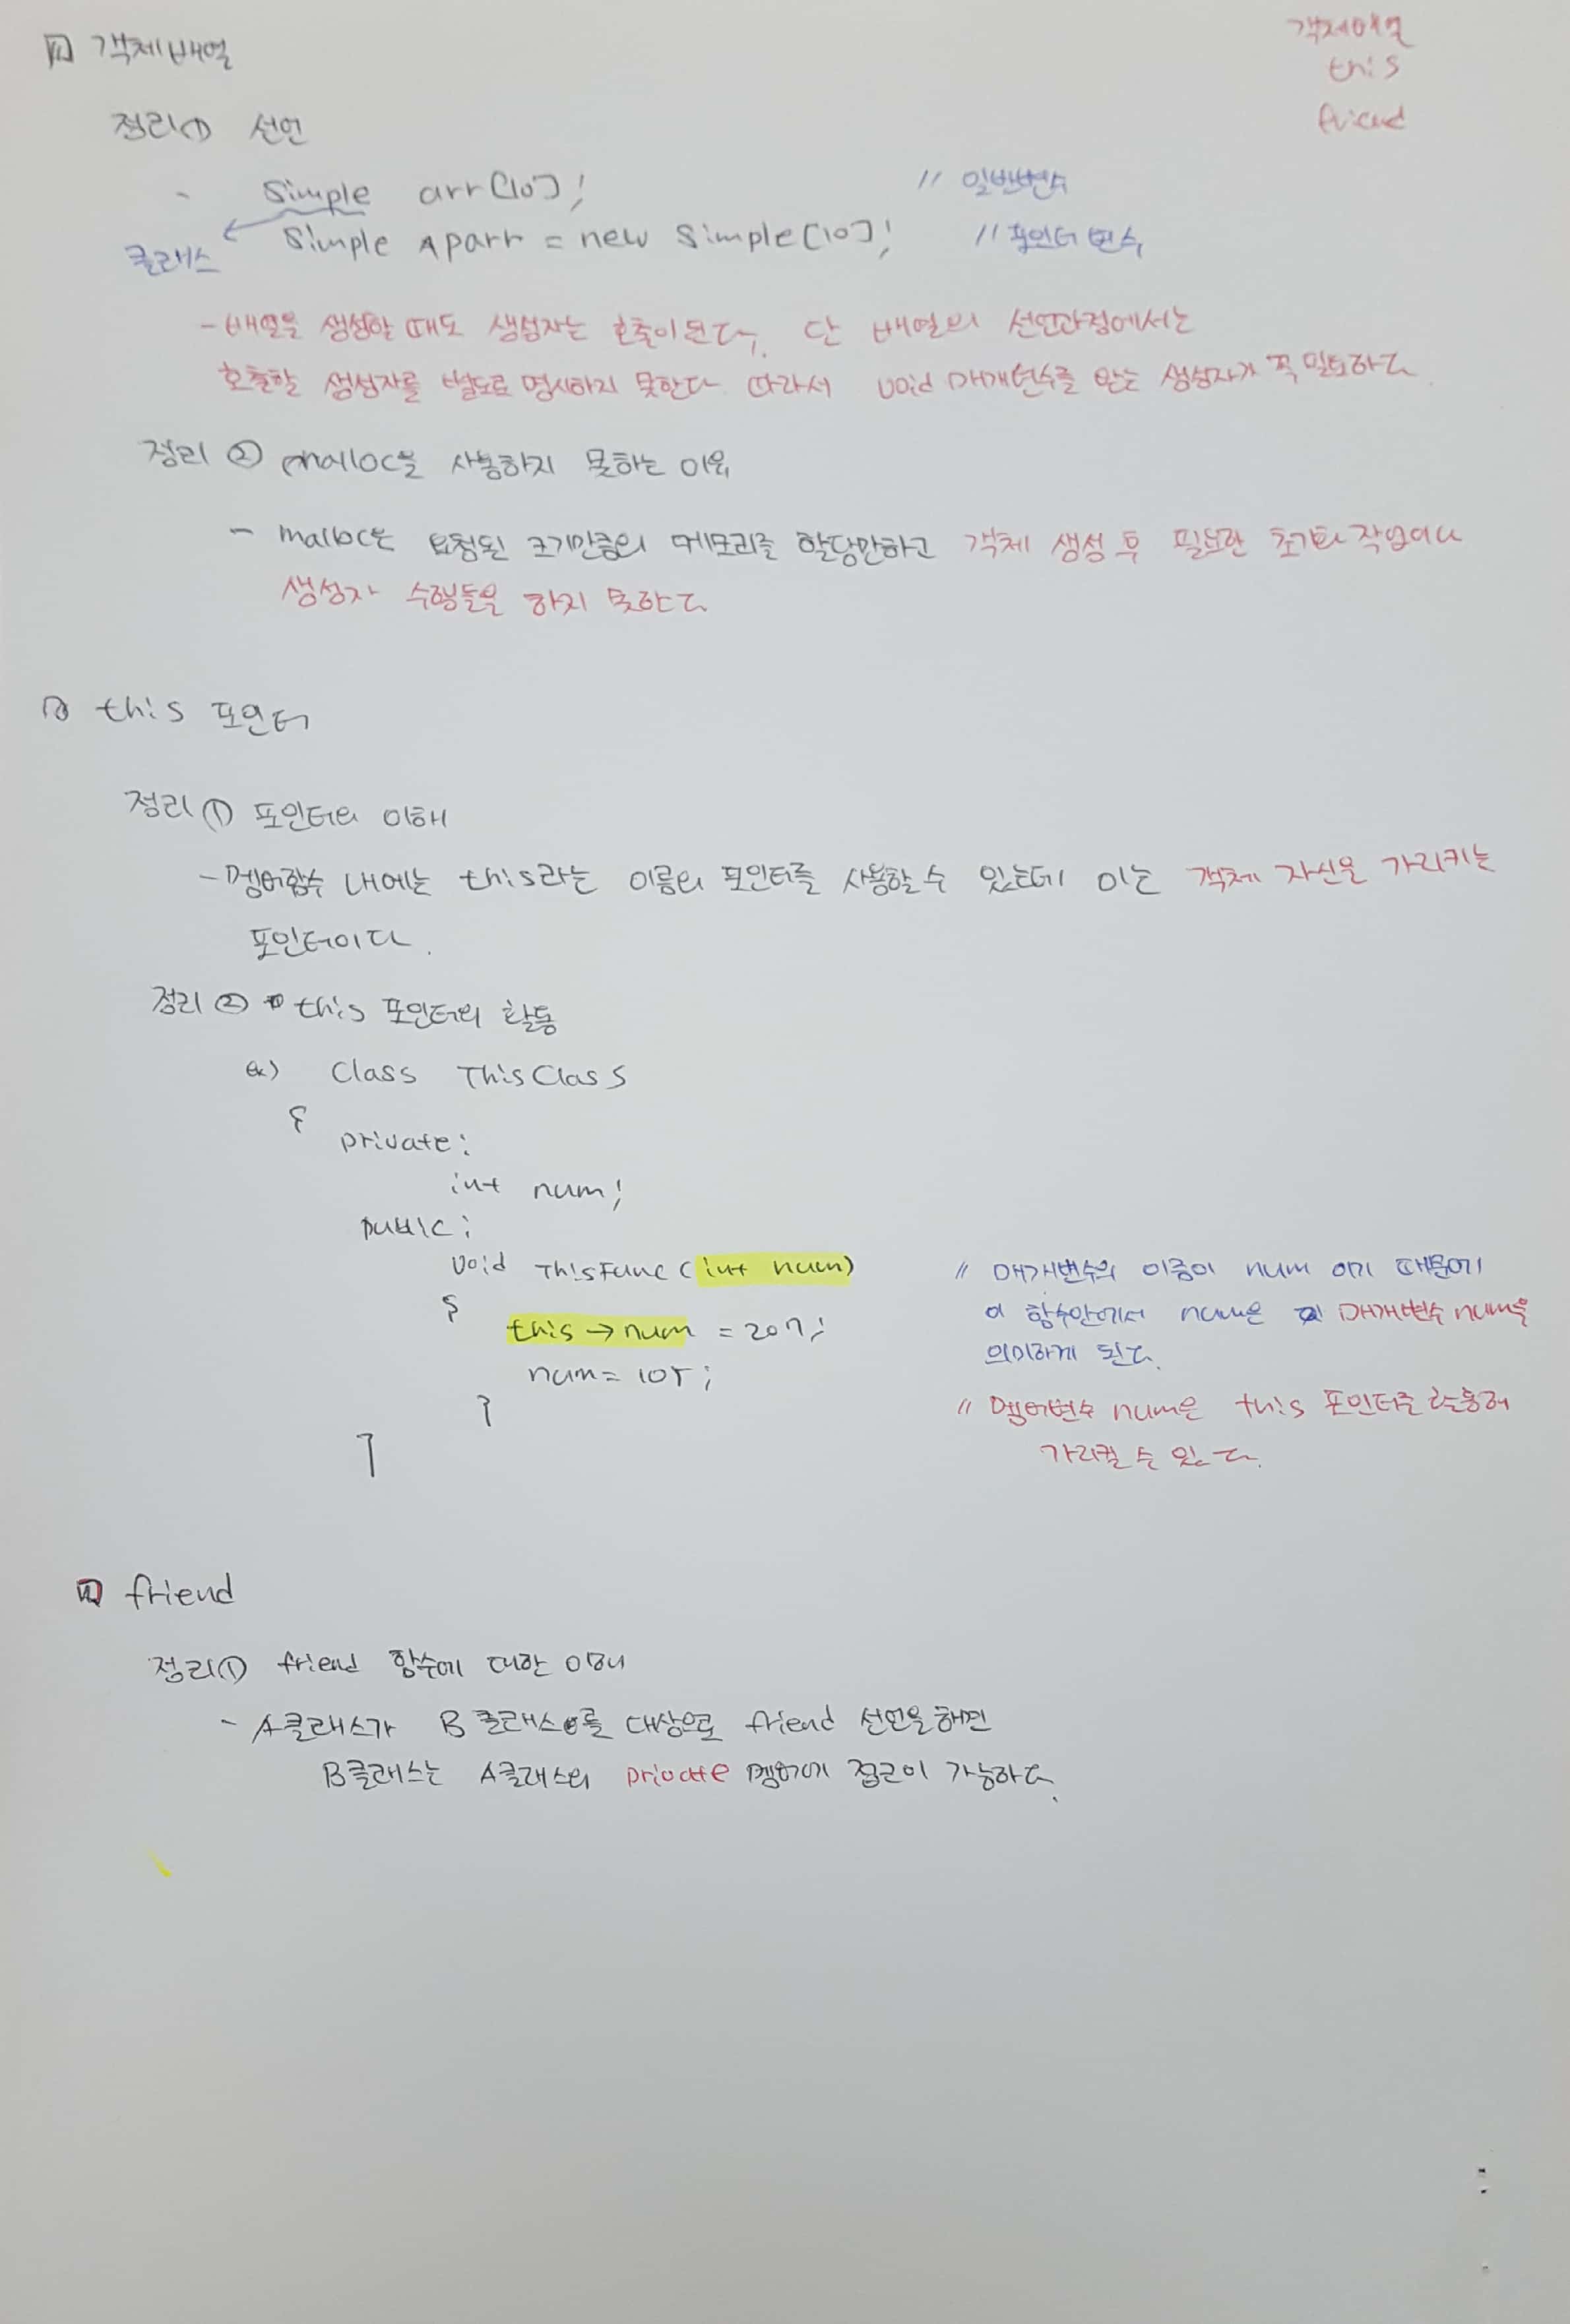 객체배열
this
friend
객체배열
정리① 선언
- Simple arr[10]; // 일반변수
클래스 Simple *parr = new Simple[10]; // 포인터 변수
- 배열을 생성할 때도 생성자는 호출이 된다, 단 배열의 선언과정에서는
호출할 생성자를 별도로 명시하지 못한다 따라서 void 매개변수를 받는 생성자가 꼭 필요하다.
정리 ② malloc을 사용하지 못하는 이유
- malloc은 요청된 크기만큼의 메모리를 할당만하고 객체 생성 후 필요한 초기화 작업이나
생성자 수행들을 하지 못한다
this 포인터
정리① 포인터의 이해
- 멤버함수 내에는 this라는 이름의 포인터를 사용할 수 있는데 이는 객체 자신을 가리키는
포인터이다.
정리② this 포인터의 활용
ex) Class ThisClass
{
private:
int num;
public:
void ThisFunc (int num) // 매개변수의 이름이 num 이기 때문에
{ 이 함수안에서 num은 매개변수 num을
this → num = 207; 의미하게 된다.
num = 105;
} // 멤버변수 num은 this 포인터를 활용해
} 가리킬 수 있다.
friend
정리① friend 함수에 대한 이해
- A클래스가 B 클래스를 대상으로 friend 선언을 하면
B클래스는 A클래스의 private 멤버에 접근이 가능하다.